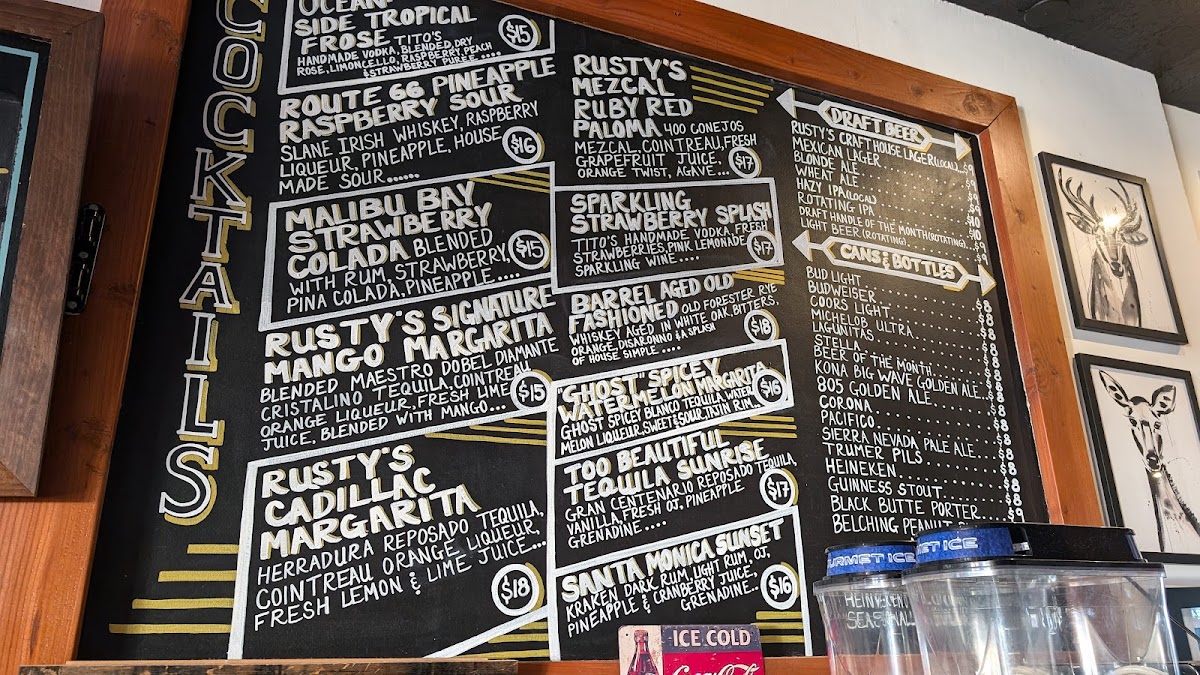 COCKTAILS
OCEAN
SIDE TROPICAL
FROSE TITO'S
HANDMADE VODKA, BLENDED, DRY
ROSE, LIMONCELLO, RASPBERRY, PEACH
& STRAWBERRY PUREE....
$15
ROUTE 66 PINEAPPLE
RASPBERRY SOUR
SLANE IRISH WHISKEY, RASPBERRY
LIQUEUR, PINEAPPLE, HOUSE
MADE SOUR......
$16
MALIBU BAY
STRAWBERRY
COLADA BLENDED
WITH RUM, STRAWBERRY,
PINA COLADA, PINEAPPLE....
$15
RUSTY'S SIGNATURE
MANGO MARGARITA
BLENDED MAESTRO DOBEL DIAMANTE
CRISTALINO TEQUILA, COINTREAU
ORANGE LIQUEUR, FRESH LIME
JUICE, BLENDED WITH MANGO...
$15
RUSTY'S
CADILLAC
MARGARITA
HERRADURA REPOSADO TEQUILA,
COINTREAU ORANGE LIQUEUR,
FRESH LEMON & LIME JUICE...
$18
RUSTY'S
MEZCAL
RUBY RED
PALOMA 400 CONEJOS
MEZCAL, COINTREAU, FRESH
GRAPEFRUIT JUICE,
ORANGE TWIST, AGAVE...
$17
SPARKLING
STRAWBERRY SPLASH
TITO'S HANDMADE VODKA, FRESH
STRAWBERRIES, PINK LEMONADE
SPARKLING WINE....
$17
BARREL AGED OLD
FASHIONED OLD FORESTER RYE
WHISKEY AGED IN WHITE OAK, BITTERS,
ORANGE, DISARONNO & A SPLASH
OF HOUSE SIMPLE....
$18
"GHOST" SPICEY
WATERMELON MARGARITA
GHOST SPICEY BLANCO TEQUILA, WATER
MELON LIQUEUR, SWEET & SOUR, TAJIN RIM
$16
TOO BEAUTIFUL
TEQUILA SUNRISE
GRAN CENTENARIO REPOSADO TEQUILA,
VANILLA, FRESH OJ, PINEAPPLE
GRENADINE.....
$17
SANTA MONICA SUNSET
KRAKEN DARK RUM, LIGHT RUM, OJ,
PINEAPPLE & CRANBERRY JUICE,
GRENADINE..
$16
DRAFT BEER
RUSTY'S CRAFTHOUSE LAGER (LOCAL)...$9
MEXICAN LAGER
BLONDE ALE
WHEAT ALE
HAZY IPA (LOCAL)
ROTATING IPA
DRAFT HANDLE OF THE MONTH (ROTATING)...
LIGHT BEER (ROTATING)...$9
CANS & BOTTLES
BUD LIGHT $8
BUDWEISER $8
COORS LIGHT $8
MICHELOB ULTRA $8
LAGUNITAS $8
STELLA $8
BEER OF THE MONTH $8
KONA BIG WAVE GOLDEN ALE $8
805 GOLDEN ALE $8
CORONA $8
PACIFICO $8
SIERRA NEVADA PALE ALE $8
TRUMER PILS $8
HEINEKEN $8
GUINNESS STOUT $8
BLACK BUTTE PORTER $9
BELCHING PEANUT
SEASONAL
URMET ICE
MET ICE
ICE COLD
Coca-Cola